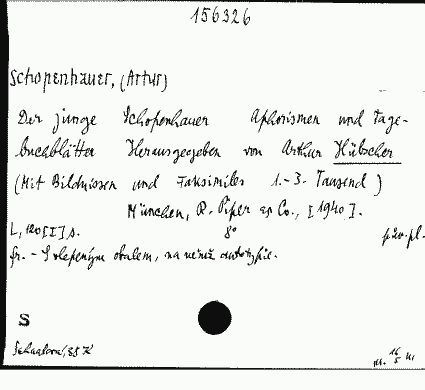 156326
Schopenhauer, (Artur)
Der junge Schopenhauer Aphorismen und Tage-
buchblätter Herausgegeben von Arthur Hübscher
(Mit Bildnissen und Faksimiles 1.-3. Tausend)
München, R. Piper & Co., [1940].
L, 120 [I] s. 8° pův. pl.
fr. - S vlepeným obalem, na němž autotypie.
S